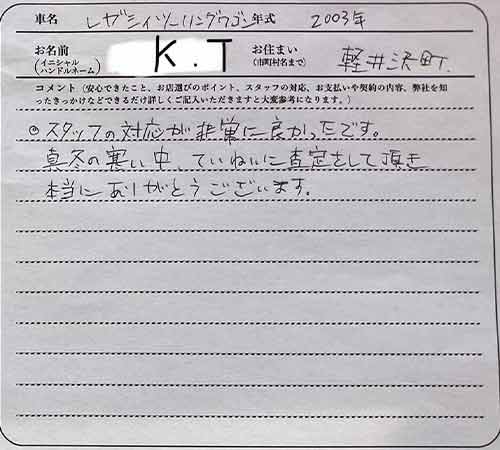 車名 レガシィツーリングワゴン 年式 2003年
お名前 (イニシャル ハンドルネーム) K.T お住まい (市町村名まで) 軽井沢町.
コメント（安心できたこと、お店選びのポイント、スタッフの対応、お支払いや契約の内容、弊社を知
ったきっかけなどできるだけ詳しくご記入いただきますと大変参考になります。）
◎スタッフの対応が非常に良かったです。
真冬の寒い中、ていねいに査定をして頂き
本当にありがとうございます。